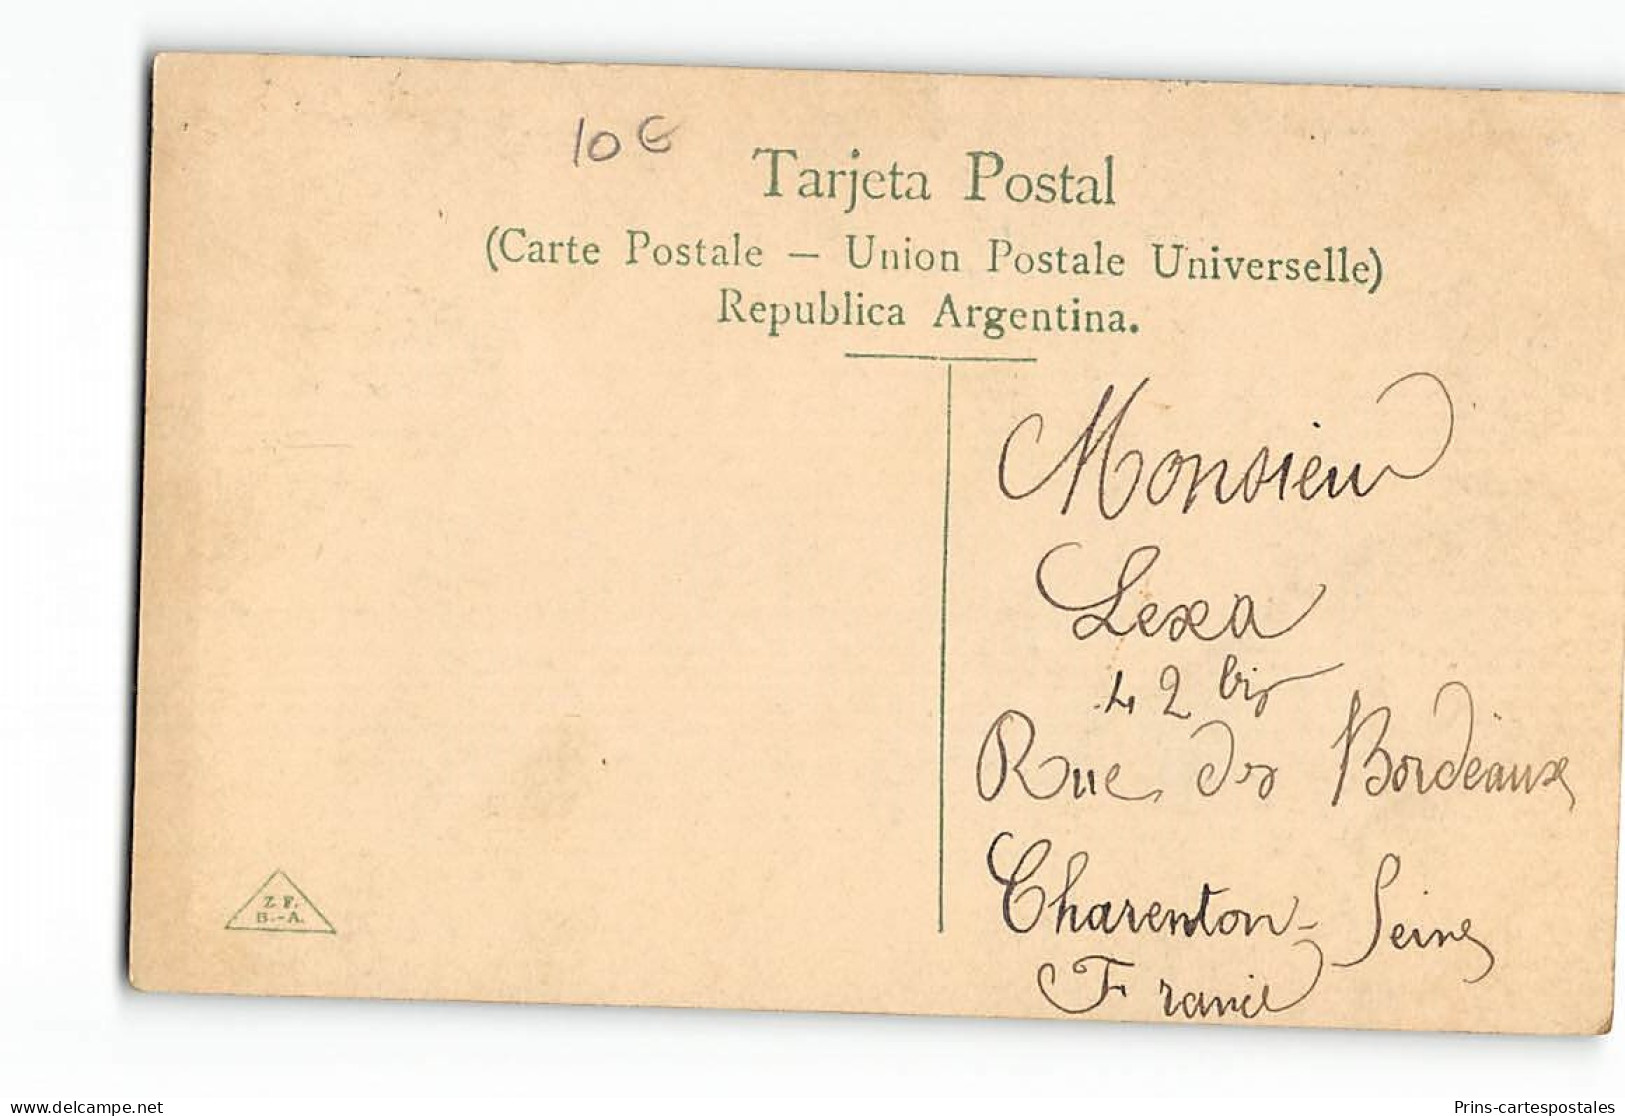 10 €
Tarjeta Postal
(Carte Postale — Union Postale Universelle)
Republica Argentina.
Monsieur
Lexa
42 bis
Rue des Bordeaux
Charenton - Seine
France
Z. F.
B.-A.
delcampe.net
Prins-cartespostales